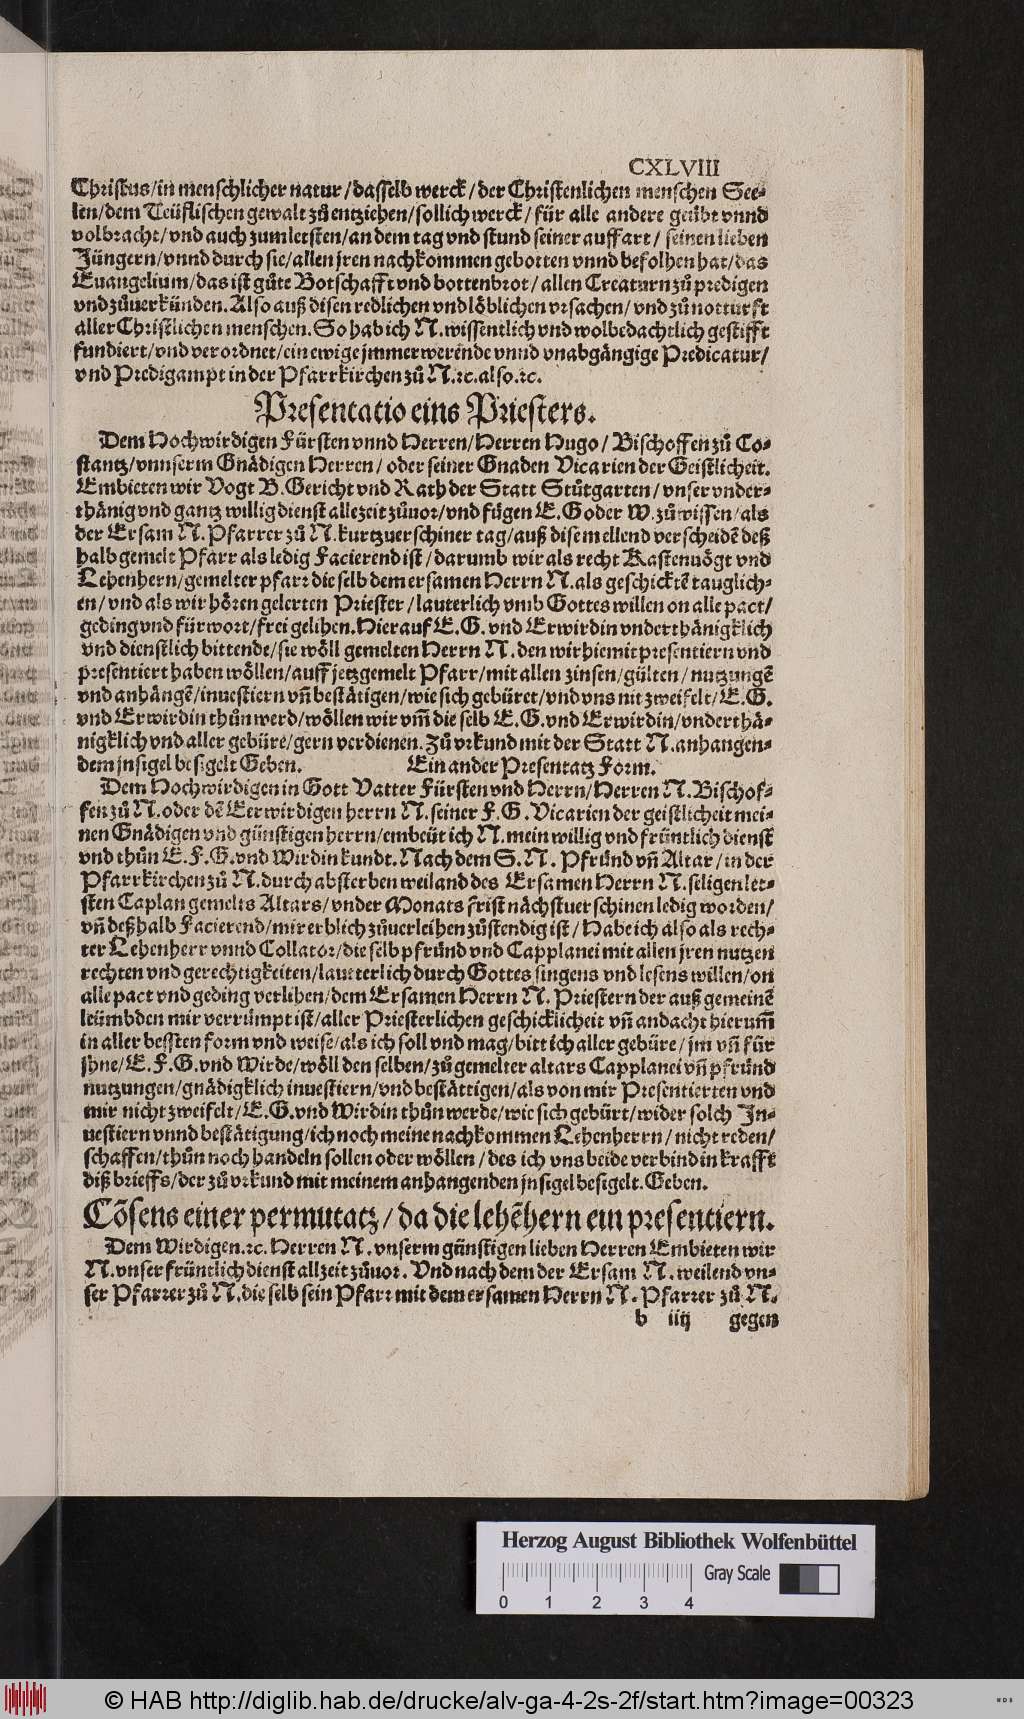 CXLVIII
Christus/in menschlicher natur/dasselb werck/der Christenlichen menschen See-
len/dem Teüflischen gewalt zů entziehen/sollich werck/für alle andere geübt vnnd
volbracht/vnd auch zum letsten/an dem tag vnd stund seiner auffart/ seinen lieben
Jüngern/vnnd durch sie/allen jren nachkommen gebotten vnnd befolhen hat/das
Euangelium/das ist gůte Botschafft vnd bottenbrot/allen Creaturn zů predigen
vnd zůuerkünden. Also auß disen redlichen vnd löblichen vrsachen/vnd zů notturft
aller Christlichen menschen. So hab ich N. wissentlich vnd wolbedachtlich gestifft
fundiert/vnd verordnet/ein ewige jmmerwerende vnnd vnabgängige Predicatur/
vnd Predigampt in der Pfarrkirchen zů N.ꝛc.also.ꝛc.
Presentatio eins Priesters.
Dem Hochwirdigen Fürsten vnnd Herren/Herren Hugo/ Bischoffen zů Co-
stantz/vnnserm Gnädigen Herren/ oder seiner Gnaden Vicarien der Geistlicheit.
Embieten wir Vogt B. Gericht vnd Rath der Statt Stůtgarten/vnser vnder-
thänig vnd gantz willig dienst allezeit zůuor/vnd fügen E. G oder W. zů wissen/als
der Ersam N. Pfarrer zů N. kurtzuerschiner tag/auß disem ellend verscheidẽ deß
halb gemelt Pfarr als ledig Facierend ist/darumb wir als recht Kastenuögt vnd
Lehenhern/gemelter pfarr die selb dem ersamen Herrn N. als geschicktẽ tauglich-
en/vnd als wir hören gelerten Priester/lauterlich vmb Gottes willen on alle pact/
geding vnd fürwort/frei gelihen. Hierauf E. G. vnd Erwirdin vnderthänigklich
vnd dienstlich bittende/sie wöll gemelten Herrn N. den wir hiemit presentiern vnd
presentiert haben wöllen/auff jetzgemelt Pfarr/mit allen zinsen/gülten/ nutzungẽ
vnd anhängẽ/inuestiern vñ bestätigen/wie sich gebüret/vnd vns nit zweifelt/E. G.
vnd Erwirdin thůn werd/wöllen wir vm̃ die selb E. G. vnd Erwirdin/vnderthä-
nigklich vnd aller gebüre/gern verdienen. Zů vrkund mit der Statt N. anhangen-
dem jnsigel besigelt Geben. Ein ander Presentatz Form.
Dem Hochwirdigen in Gott Vatter Fürsten vnd Herrn/Herren N. Bischof-
fen zů N. oder dẽ Eerwirdigen herrn N. seiner F. G. Vicarien der geistlicheit mei-
nen Gnädigen vnd günstigen herrn/embeüt ich N. mein willig vnd früntlich dienst
vnd thůn E. F. G. vnd Wirdin kundt. Nach dem S. N. Pfründ vñ Altar/in der
Pfarrkirchen zů N. durch absterben weiland des Ersamen Herrn N. seligen let-
sten Caplan gemelts Altars/vnder Monats frist nächstuerschinen ledig worden/
vñ deßhalb Facierend/mir erblich zůuerleihen zůstendig ist/Habe ich also als rech-
ter Lehenherr vnnd Collator/die selb pfründ vnd Capplanei mit allen jren nutzen
rechten vnd gerechtigkeiten/lautterlich durch Gottes singens vnd lesens willen/on
alle pact vnd geding verlihen/dem Ersamen Herrn N. Priestern der auß gemeinẽ
leümbden mir verrümpt ist/aller Priesterlichen geschicklicheit vñ andacht hierum̃
in aller bessten form vnd weise/als ich soll vnd mag/bitt ich aller gebüre/jm vñ für
jhne/E. F. G. vnd Wirde/wöll den selben/zů gemelter altars Capplanei vñ pfründ
nutzungen/gnädigklich inuestiern/vnd bestättigen/als von mir Presentierten vnd
mir nicht zweifelt/E. G. vnd Wirdin thůn werde/wie sich gebürt/wider solch In-
uestiern vnnd bestätigung/ich noch meine nachkommen Lehenherrn/nicht reden/
schaffen/thůn noch handeln sollen oder wöllen/des ich vns beide verbind in krafft
diß brieffs/der zů vrkund mit meinem anhangenden jnsigel besigelt. Geben.
Cõsens einer permutatz/da die lehẽhern ein presentiern.
Dem Wirdigen.ꝛc. Herren N. vnserm günstigen lieben Herren Embieten wir
N. vnser früntlich dienst allzeit zůuor. Vnd nach dem der Ersam N. weilend vn-
ser Pfarrer zů N. die selb sein Pfarr mit dem ersamen Herrn N. Pfarrer zů N.
b iiij gegen
Herzog August Bibliothek Wolfenbüttel
Gray Scale
0 1 2 3 4
© HAB http://diglib.hab.de/drucke/alv-ga-4-2s-2f/start.htm?image=00323